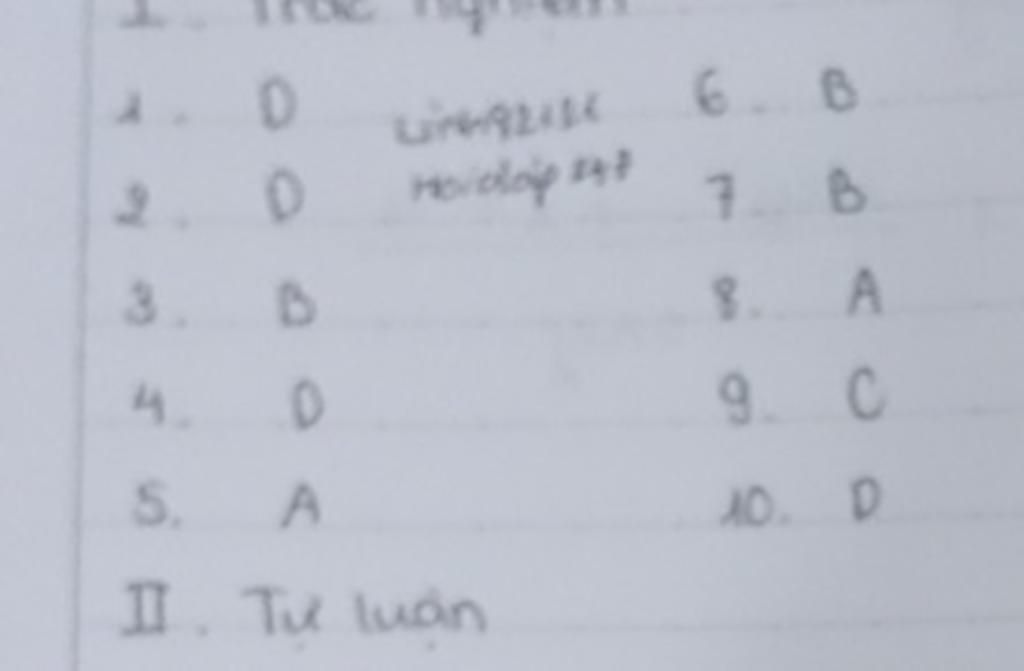 I. Trắc nghiệm
1. D
2. D
Hoidap247
3. B
4. D
5. A
6. B
7. B
8. A
9. C
10. D
II. Tự luận